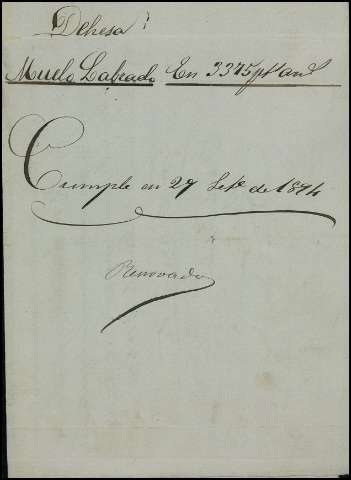 Dehesa
Muelo Labrado En 3375 pts an.s
Cumple en 29 Set.e de 1874
Renovado